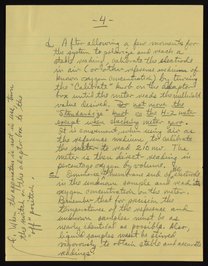 - 4 -
d. After allowing a few moments for
the system to stabilize and reach a
steady reading, calibrate the electrode
in air (or other reference medium of
known oxygen concentration) by turning
the "Calibrate" knob on the adaptor
box until the meter reads the millivolt
value desired. Do not move the
"Standardize" knob on the
except when checking meter zero.
It is convenient, when using air as
the reference medium, to calibrate
the meter to read 210 mv. The
meter is then direct-reading in
percentage oxygen by volume.
e. Immerse membrane end of electrode
in the unknown sample and read its
oxygen concentration on the meter.
Remember that for precision, the
temperature of the reference and
unknown samples must be as
nearly identical as possible. Also,
liquid samples must be stirred
vigorously to obtain stable and accurate
readings.
f. When the apparatus is not in use, turn
the switch on the adaptor box to the
off position.